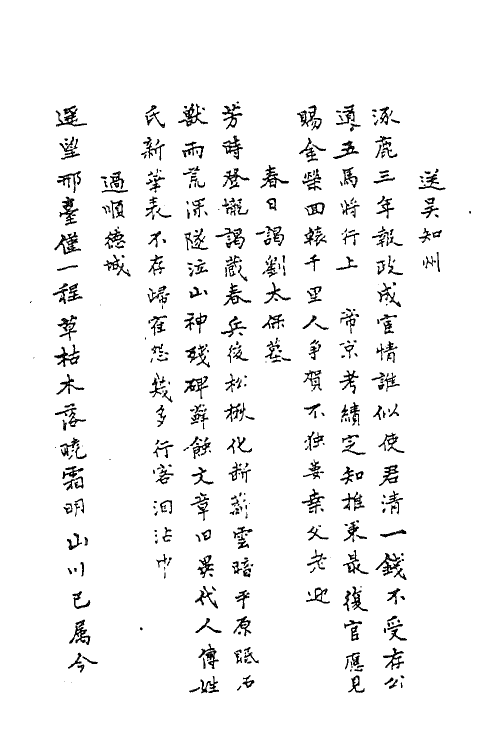 送吴知州
涿鹿三年報政成宦情誰似使君清一錢不受存公
道五馬將行上　帝京考績定知推東最復官應見
賜金榮回轅千里人爭賀不独妻桒父老迎
春日謁劉太保墓
芳時登壠謁蔵春兵後松楸化断薪雲暗平原眠石
獣雨荒深隧泣山神残碑蘚蝕文章旧異代人傳姓
氏新華表不存歸雀怨幾多行客泪沾巾
過順德城
遥望邢臺僅一程草枯木落曉霜明山川已属今